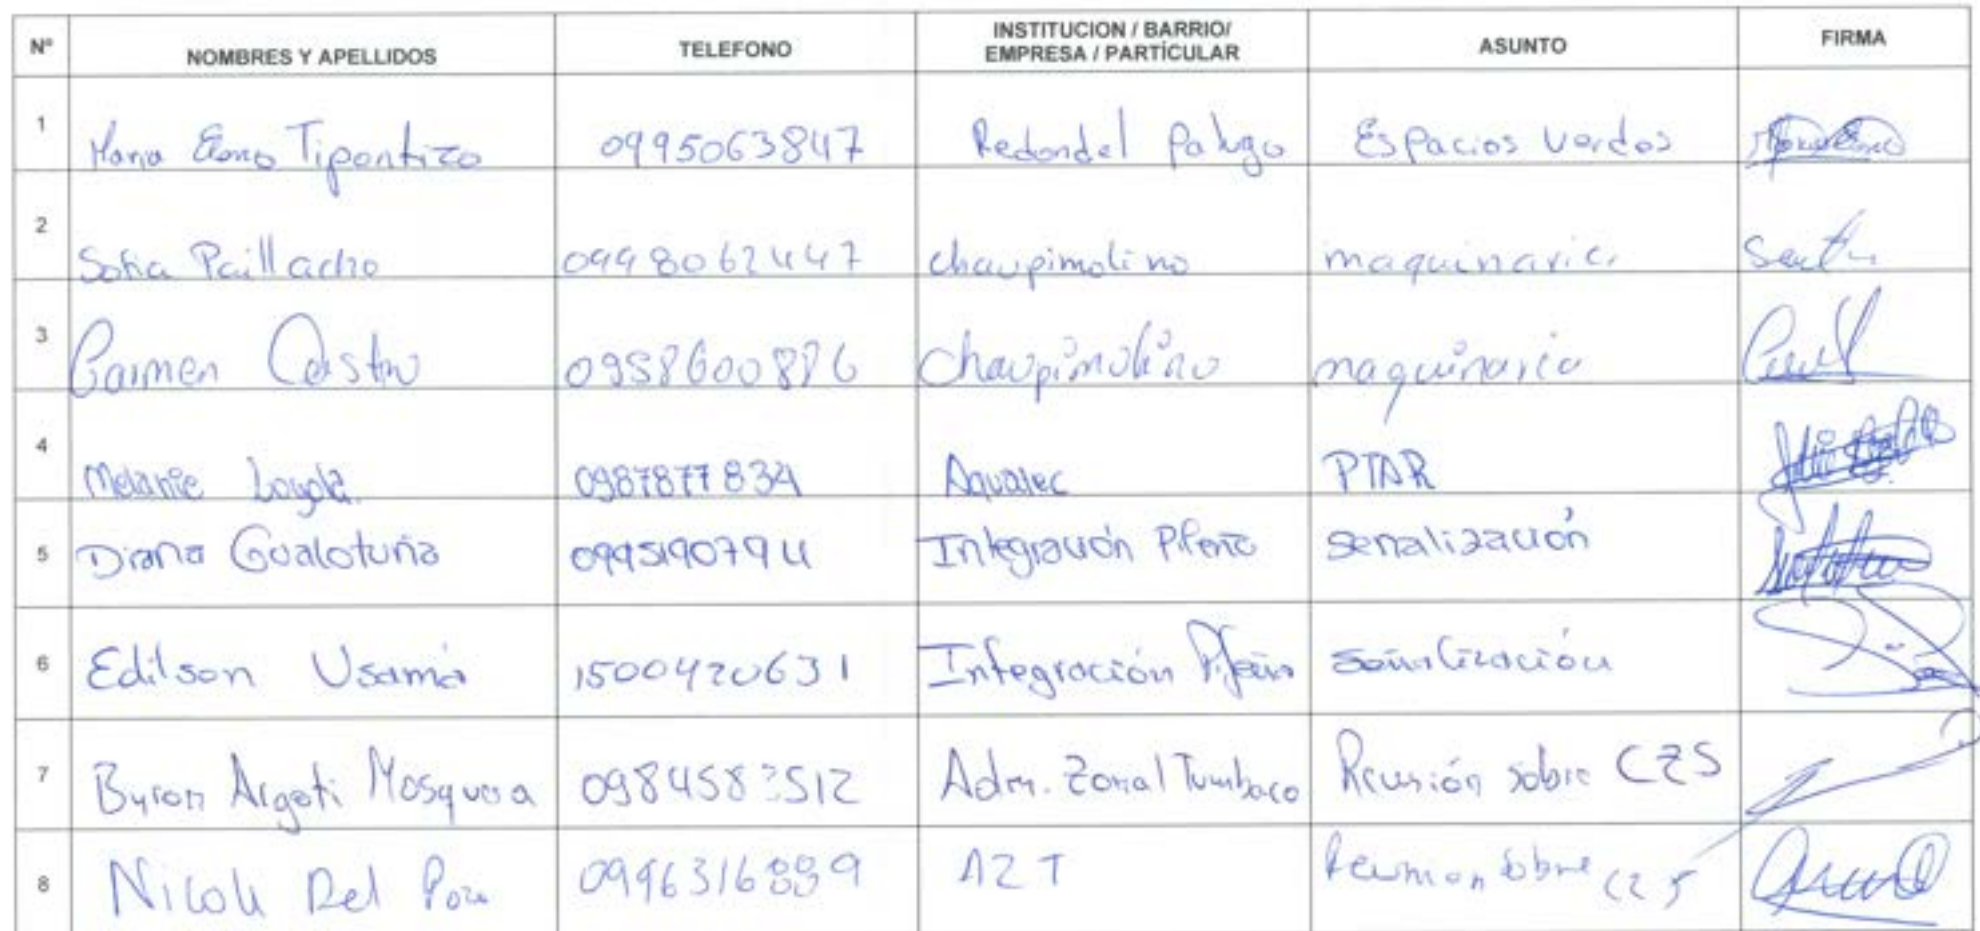 Nº NOMBRES Y APELLIDOS TELEFONO INSTITUCION / BARRIO/ EMPRESA / PARTÍCULAR ASUNTO FIRMA
1 Maria Elena Tipantiza 0995063847 Redondel Palugo Espacios Verdes
2 Sofia Paillacho 0998062447 chaupimolino maquinaria
3 Carmen Castro 0958600886 Chaupimolino maquinaria
4 Melanie Loyola. 0987877834 Aqualec PTAR
5 Diana Gualotuña 0995190794 Integración Pifeña señalización
6 Edilson Usama 1500420631 Integración señalización
7 Byron Argoti Mosquera Adm. Zonal Tumbaco Reunión sobre CZS
8 Nicole Del Pozo AZT Reunion sobre